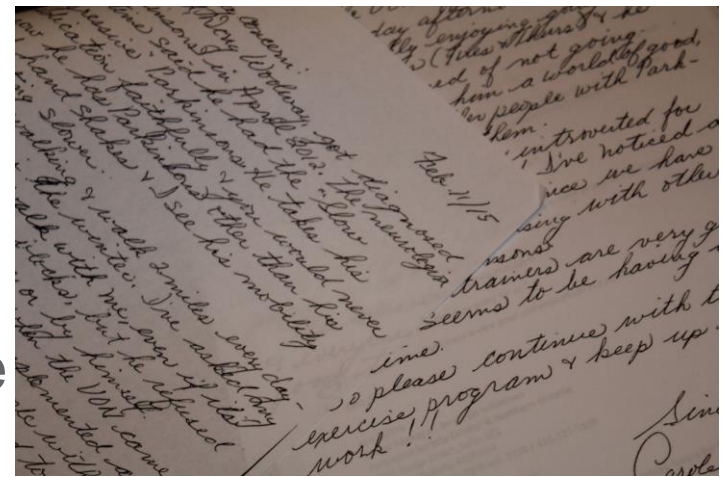 Feb. 11/15
concern:
Woolway, got diagnosed
Parkinsons in April 2012. The neurologist
said he had the "slow
Parkinsons. He takes his
faithfully & you would never
he has Parkinsons other than his
hand shakes & I see his mobility
slower.
walking & walk 2 miles every day-
the winter. I've asked
walk with me, even if it's
blocks, but he refused
or by himself.
the VON came
implemented a
with
day
enjoying
(Tues & Thurs) & he
ed of not going.
him a world of good,
people with Park-
them.
introverted for
I've noticed a
ice we have
sing with other
nsons
trainers are very g
seems to be having
ime.
so please continue with t
exercise program & keep up
work!!
Sin
Carole
e